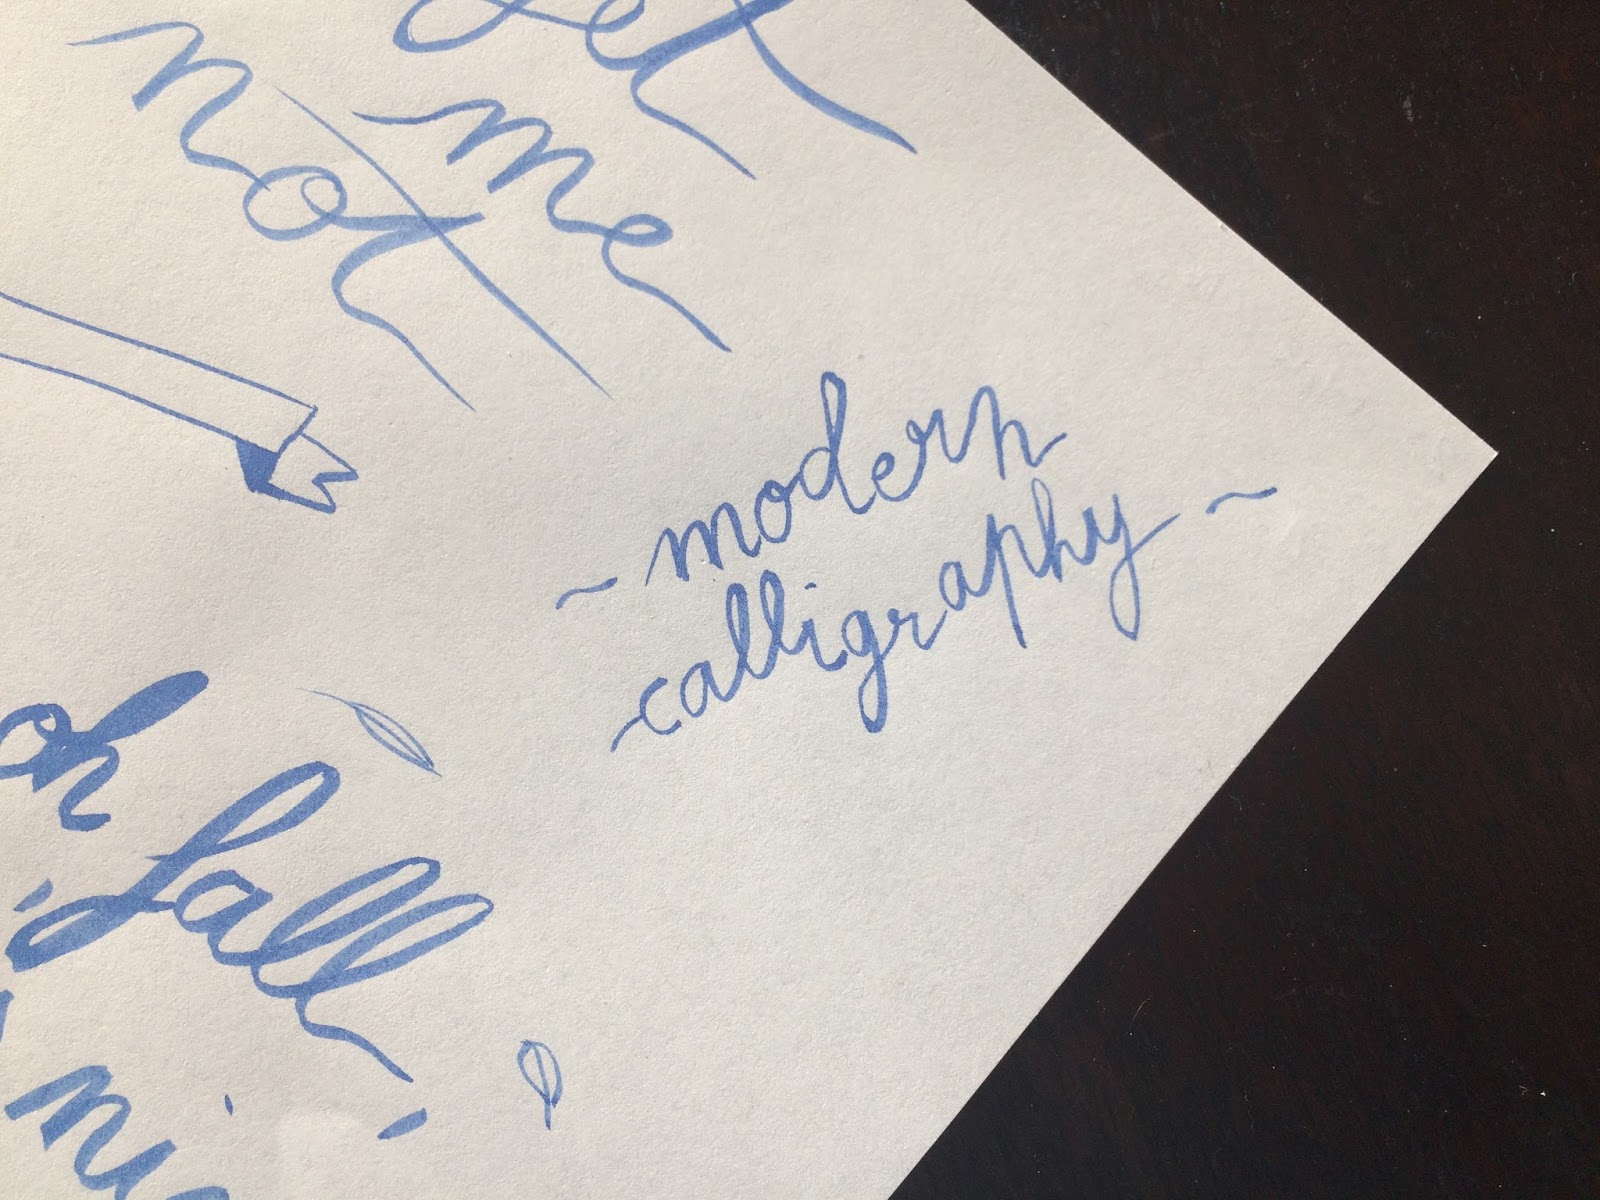 get
me
not
~ modern
calligraphy ~
oh fall